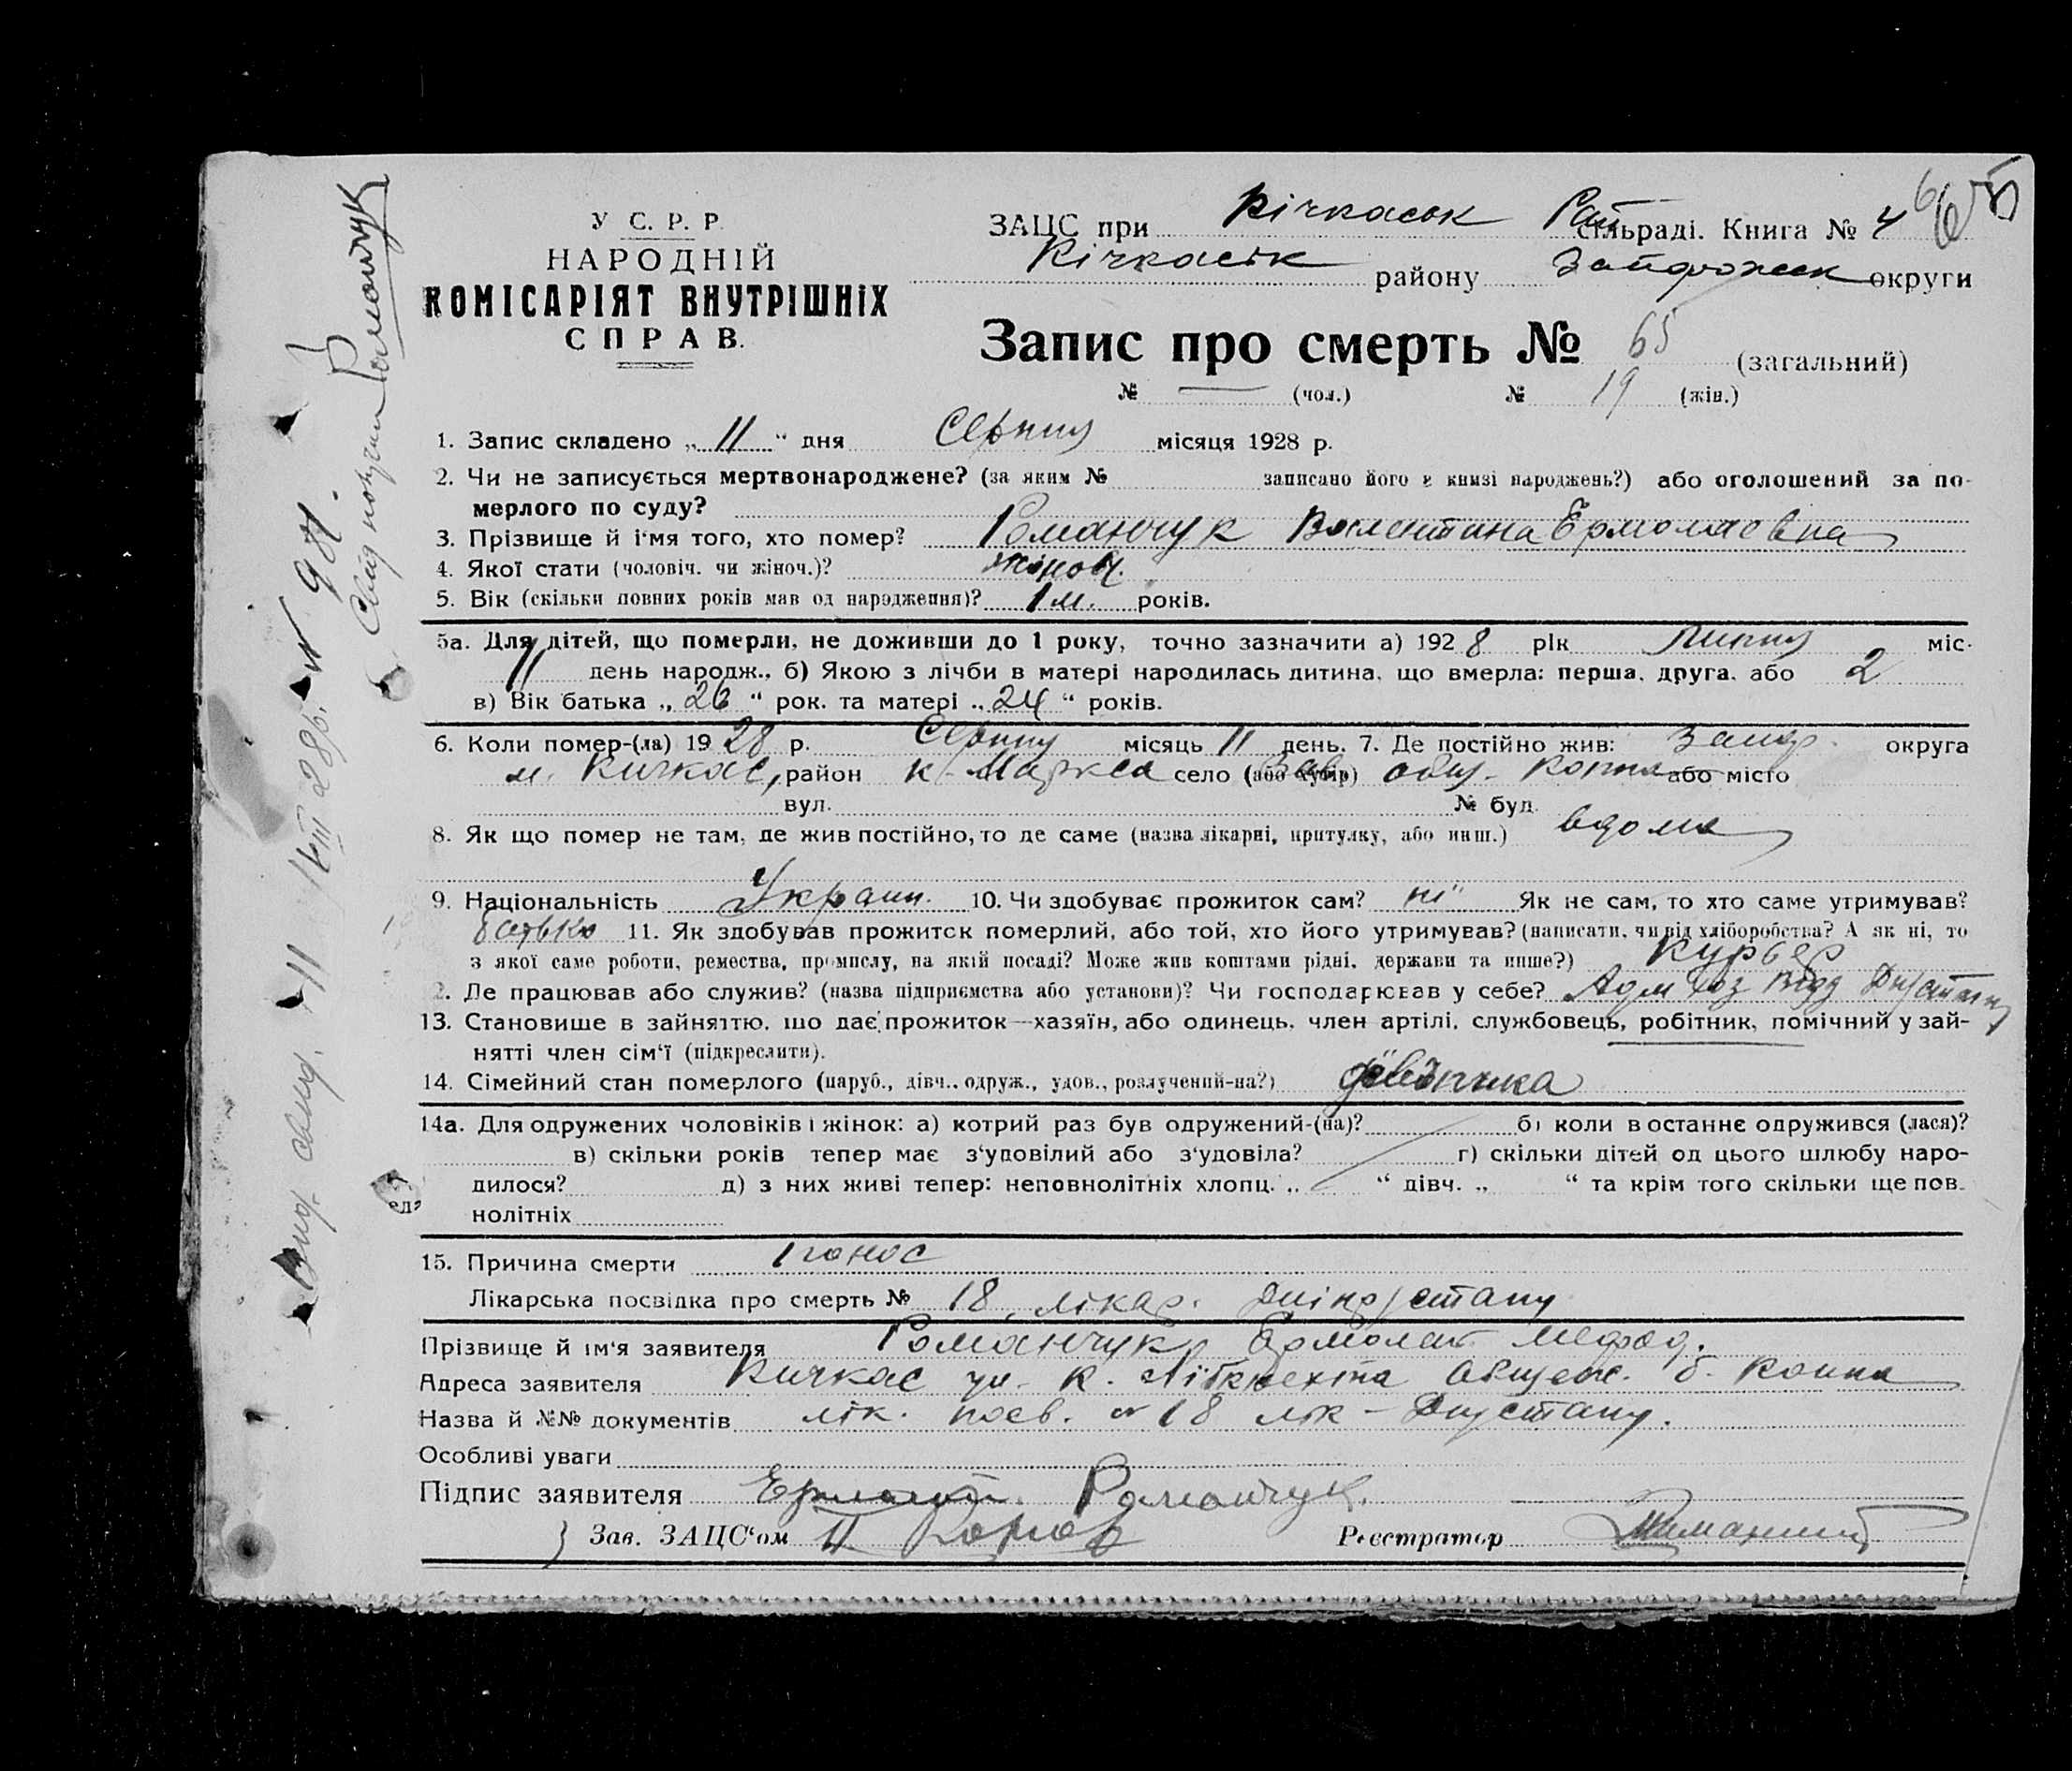 У С. Р. Р.
НАРОДНІЙ
КОМІСАРІЯТ ВНУТРІШНІХ
СПРАВ.
ЗАЦС при Кічкаськ Рай сільраді. Книга № 4
Кічкаськ району округи
Запис про смерть № 65 (загальний)
№ — (чол.) № 19 (жін.)
1. Запис складено „ 11 " дня Серпня місяця 1928 р.
2. Чи не записується мертвонароджене? (за яким № записано його в книзі народжень?) або оголошений за по-
мерлого по суду?
3. Прізвище й ім'я того, хто помер? Романчук Валентина Ермолаевна
4. Якої стати (чоловіч. чи жіноч.)? жіноч.
5. Вік (скільки повних років мав од народження)? 1 м. років.
5а. Для дітей, що померли, не доживши до 1 року, точно зазначити а) 1928 рік Липня міс.
11 день народж., б) Якою з лічби в матері народилась дитина, що вмерла: перша, друга, або 2
в) Вік батька „ 26 " рок. та матері „ 24 " років.
6. Коли помер-(ла) 1928 р. Серпня місяць 11 день. 7. Де постійно жив: Запор. округа
м. Кичкас, район К-Маркса село (або хутір) общ. Коппа або місто
вул. № буд.
8. Як що помер не там, де жив постійно, то де саме (назва лікарні, притулку, або инш.) вдома
9. Національність Украин. 10. Чи здобуває прожиток сам? ні Як не сам, то хто саме утримував?
батько 11. Як здобував прожиток померлий, або той, хто його утримував? (написати, чи від хліборобства? А як ні, то
з якої саме роботи, ремества, промислу, на якій посаді? Може жив коштами рідні, держави та инше?) Курьер
2. Де працював або служив? (назва підприємства або установи)? Чи господарював у себе? Адм Хоз Відд
13. Становище в зайняттю, що дає прожиток—хазяїн, або одинець, член артілі, службовець, робітник, помічний у зай-
нятті член сім'ї (підкреслити).
14. Сімейний стан померлого (паруб., дівч., одруж., удов., розлучений-на?) дівчинка
14а. Для одружених чоловіків і жінок: а) котрий раз був одружений-(на)? б) коли востаннє одружився (лася)?
в) скільки років тепер має з'уповілий або з'удовіла? г) скільки дітей од цього шлюбу наро-
дилося? д) з них живі тепер: неповнолітніх хлопц. „ " дівч. „ " та крім того скільки ще пов-
нолітніх
15. Причина смерти понос
Лікарська посвідка про смерть № 18 лікар.
Прізвище й ім'я заявителя Романчук Ермолай мефод.
Адреса заявителя Кичкас ул. К. Лібкнехта Общеж. б. Коппа
Назва й №№ документів лік. посв. № 18 лік -
Особливі уваги
Підпис заявителя Ермолай Романчук
Зав. ЗАЦС'ом
Реєстратор
№ 981.
Романчук